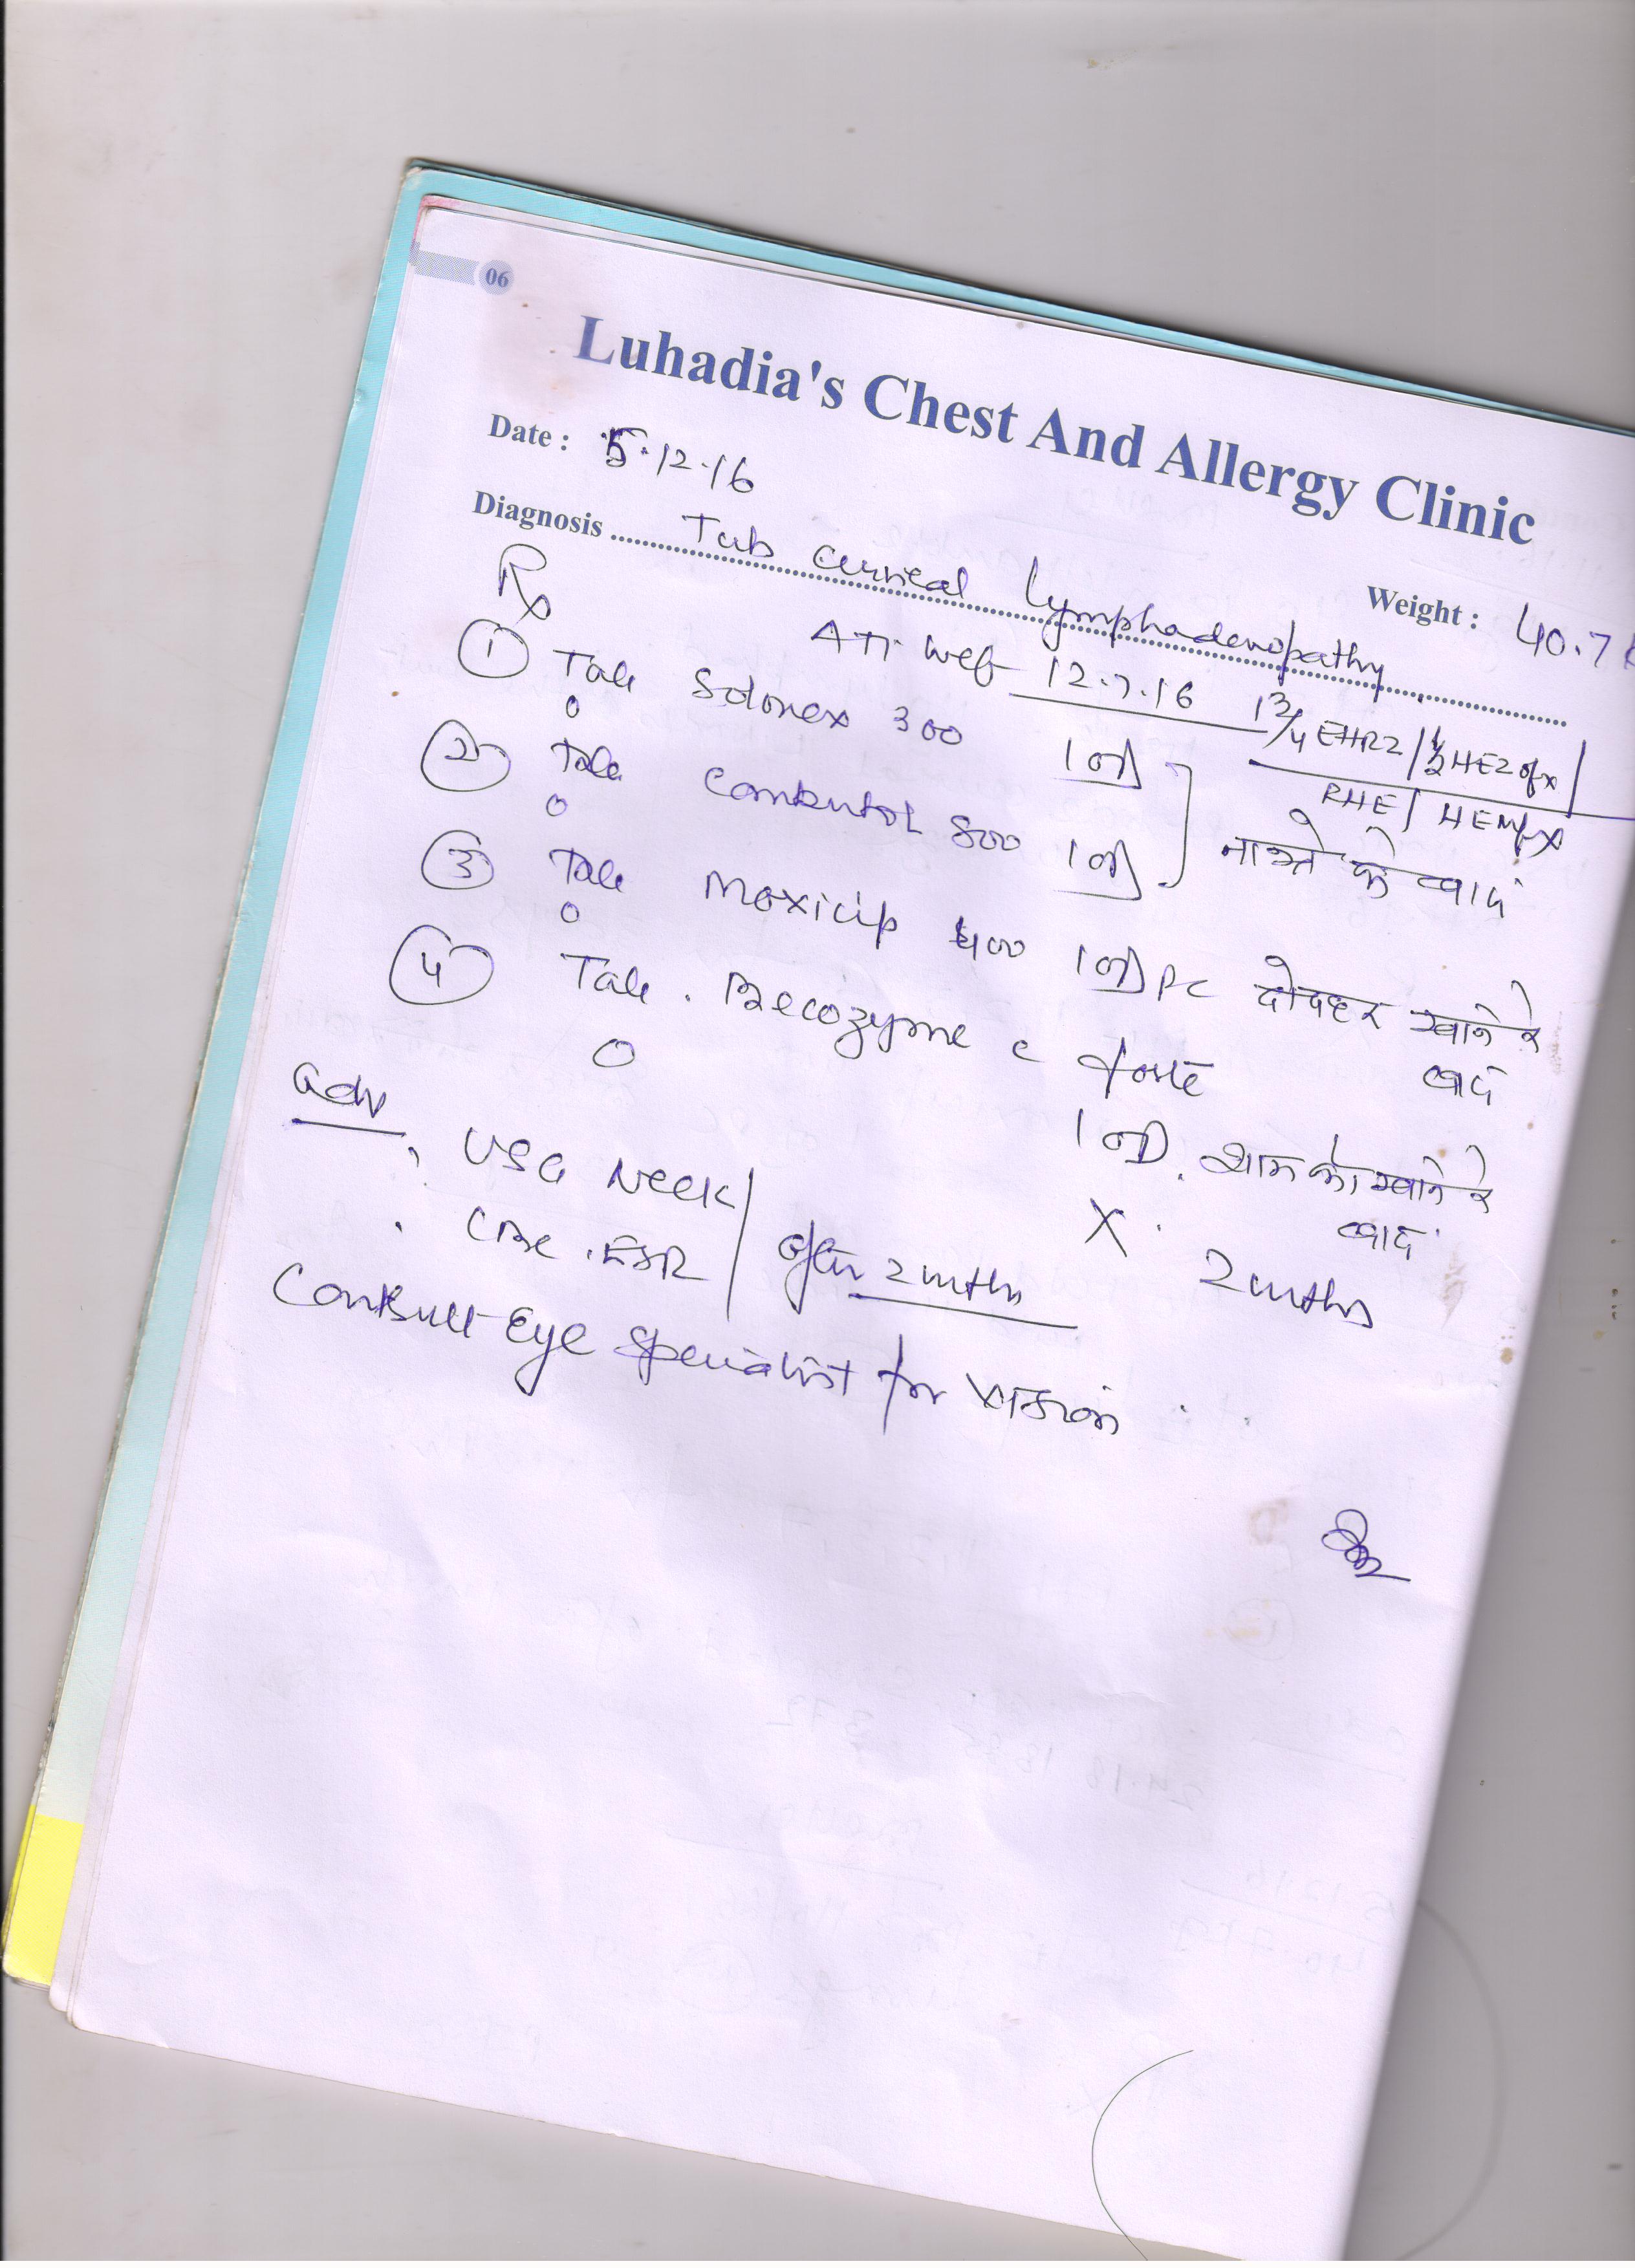 06
Luhadia's Chest And Allergy Clinic
Date : 5.12.16
Weight : 40.7
Diagnosis Tub Cervical Lymphadenopathy
Rx
ATT wef 12.7.16 1 3/4 EHRZ / 1/2 HEZ Ofx
RHE / HEMfx
① Tab Solonex 300 1 OD
② Tab Combutol 800 1 OD ] नाश्ते के बाद
③ Tab Moxicip 400 1 OD PC दोपहर खाने के
बाद
④ Tab. Becozyme C forte
1 OD. शाम को खाने के
बाद
X 2 mths
Adv
. USG Neck
. CBC . ESR / after 2 mths
Consult Eye Specialist for Vision